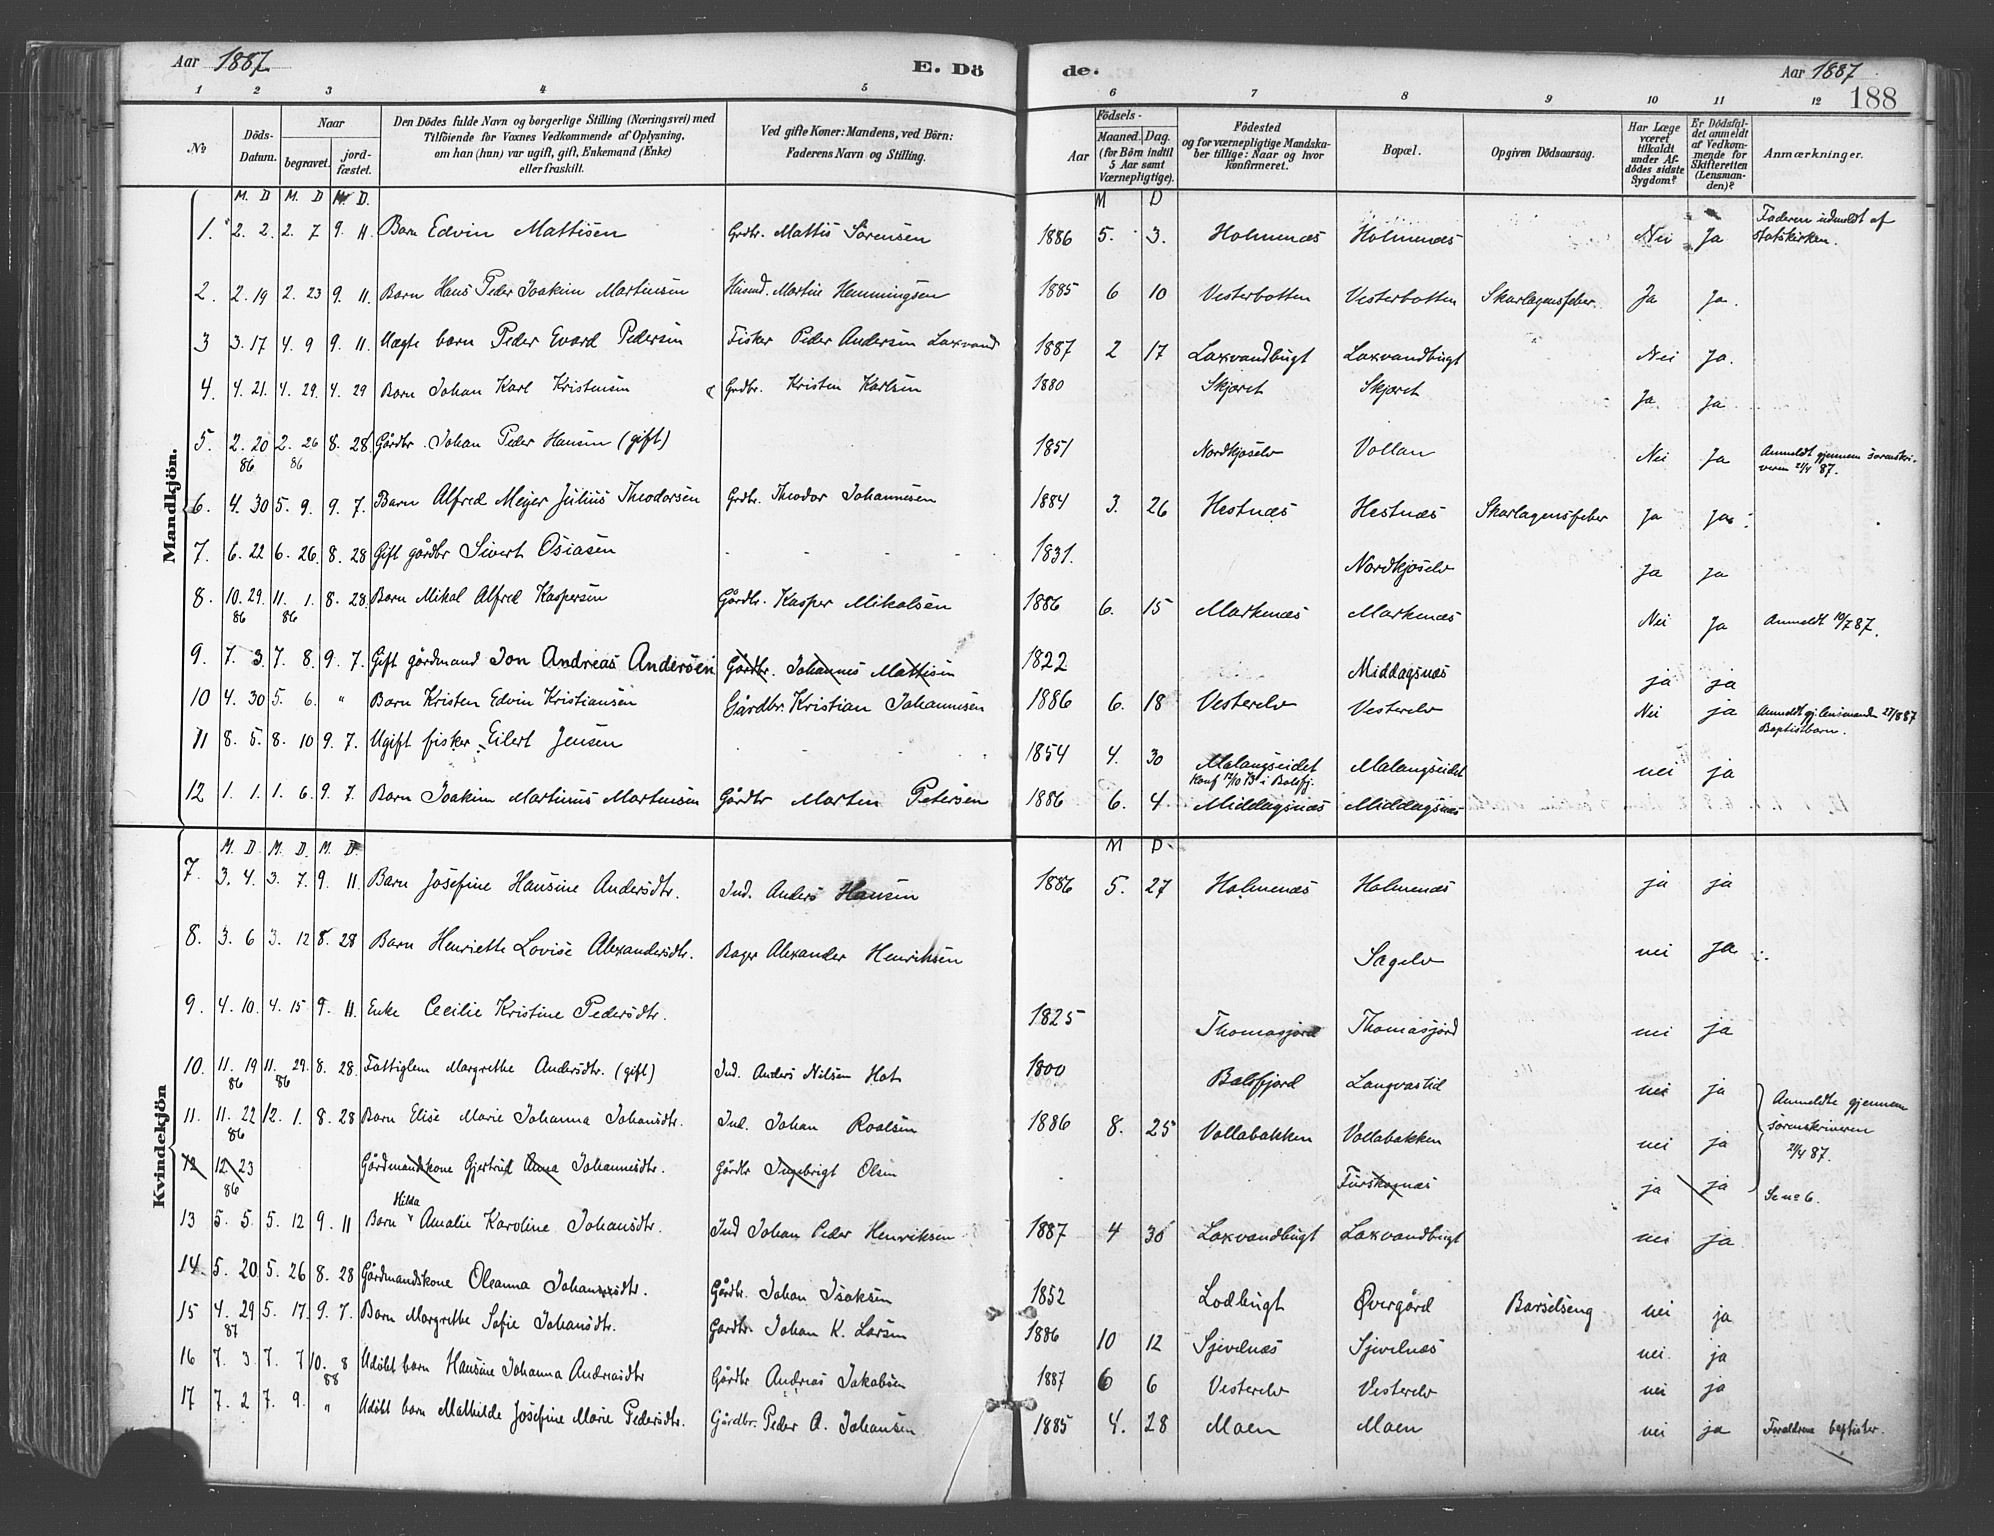 Aar 1887. E. Dö de. Aar 1887
188
1 2 3 4 5 6 7 8 9 10 11 12
No
Döds-Datum.
Naar
begravet. jord-fæstet.
Den Dödes fulde Navn og borgerlige Stilling (Næringsvei) med
Tilföiende for Voxnes Vedkommende af Oplysning,
om han (hun) var ugift, gift, Enkemand (Enke)
eller fraskilt.
Ved gifte Koner: Mandens, ved Börn:
Faderens Navn og Stilling.
Födsels-
Aar
Maaned. Dag.
(for Börn indtil
5 Aar samt
Værnepligtige).
Födested
og for værnepligtige Mandska-
ber tillige: Naar og hvor
konfirmeret.
Bopæl.
Opgiven Dödsaarsag.
Har Læge
været
tilkaldt
under Af-
dödes sidste
Sygdom?
Er Dödsfal-
det anmeldt
af Vedkom-
mende for
Skifteretten
(Lensman-
den)?
Anmærkninger.
Mandkjön.
M. D M. D M. D. M D
1. 2. 2. 2. 7 9. 11. Barn Edvin Mattisen Grdbr. Mattis Sörensen 1886 5. 3. Holmenæs Holmenæs Nei Ja Faderen udmeldt af
statskirken.
2. 2. 19 2. 23 9. 11. Barn Hans Peder Joakim Martinsen Husmd. Martin Henningsen 1885 6 10 Vesterbotten Vesterbotten Skarlagensfeber. Ja Ja.
3 3. 17 4. 9 9. 11. Uægte barn Peder Evard Pedersen Fisker Peder Andersen Laxvand 1887 2 17 Laxvandbugt Laxvandbugt Nei Ja.
4. 4. 21. 4. 29. 4. 29 Barn Johan Karl Kristensen Grdbr. Kristen Karlsen 1880 Skjæret Skjæret Ja. Ja
5. 2. 20 2. 26 8. 28 Gårdbr. Johan Peder Hansen (gift) 1851 Nordkjoselv Vollan Nei Ja Anmeldt gjennem sorenskri-
86 86 veren 21/4 87.
6. 4. 30 5. 9. 9. 7. Barn Alfred Meyer Julius Theodorsen Grdbr. Theodor Johannesen 1884 3. 26 Hestnæs Hestnæs Skarlagensfeber Ja Ja
7. 6. 22 6. 26. 8. 28 Gift gårdbr Sivert Osiasen 1831. Nordkjoselv Ja Ja
8. 10. 29. 11. 1. 8. 28. Barn Mikal Alfred Kaspersen Gårdbr. Kasper Mikalsen 1886 6. 15 Markenæs Markenæs Nei Ja Anmeldt 10/7 87.
86 86
9. 7. 3. 7. 8. 9. 7. Gift gårdmand Jon Andreas Andersen Gårdbr. Johannes Mattisen 1822 Middagsnæs ja ja
10 4. 30 5. 6. " Barn Kristen Edvin Kristiansen Gårdbr. Kristian Johannesen 1886 6. 18 Vesterelv Vesterelv Nei ja Anmeldt gj. lensmanden 27/8 87
Baptistbarn.
11 8. 5. 8. 10 9. 7. Ugift fisker Eilert Jensen 1854 4. 30 Malangseidet Malangseidet nei ja
Konf 12/10 73 i Balsfj.
12 1. 1. 1. 6. 9. 7. Barn Joakim Martinus Martensen Gårdbr Marten Petersen 1886 6. 4. Middagsnæs Middagsnæs
Kvindekjön
M. D. M. D. M. D. M D.
7. 3. 4. 3. 7. 9. 11. Barn Josefine Hansine Andersdtr. Ind. Anders Hansen 1886 5. 27 Holmenæs Holmenæs ja ja
8. 3. 6 3. 12 8. 28 Barn Henriette Lovise Alexandersdtr. Bager Alexander Henriksen Sagelv nei ja
9. 4. 10. 4. 15 9. 11. Enke Cecilie Kristine Pedersdtr. 1825 Thomasjord Thomasjord nei ja
10. 11. 19 11. 29. 8. 28. Fattiglem Margrethe Andersdtr. (gift) Ind. Anders Nilsen Hat 1800 Balsfjord Langvastid nei ja
86 86
11. 11. 22 12. 1. 8. 28 Barn Elise Marie Johanna Johansdtr. Ind. Johan Roalsen 1886 8. 25 Vollabakken Vollabakken nei ja Anmeldte gjennem
sorenskriveren
21/4 87.
86
12 12. 23 Gårdmandskone Gjertrud Anna Johannesdtr. Gårdbr Ingebrigt Olsen Furskognæs ja ja Se no 6.
86
Hilda
13 5. 5. 5. 12 9. 11 Barn Amalie Karoline Johansdtr. Ind Johan Peder Henriksen 1887 4 30 Laxvandbugt Laxvandbugt nei ja
14 5. 20 5. 26 8. 28 Gårdmandskone Oleanna Johannesdtr. Gårdbr. Johan Isaksen 1852 Lodbugt Øvergård Barselseng nei ja
15 4. 29 5. 17 9. 7. Barn Margrethe Sofie Johansdtr. Gardbr. Johan K. Larsen 1886 10 12 Sjevelnæs Sjevelnæs nei. ja
87
16 7. 3. 7. 7 10. 8 Udöbt barn Hansine Johanna Andreasdtr Gårdbr Andreas Jakobsen 1887 6 6 Vesterelv Vesterelv nei ja
88
17 7. 2 7. 9. " Udöbt barn Mathilde Josefine Marie Pedersdtr. Gårdbr. Peder A. Johansen 1885 4. 28 Moen Moen nei ja Foraldrene baptister.